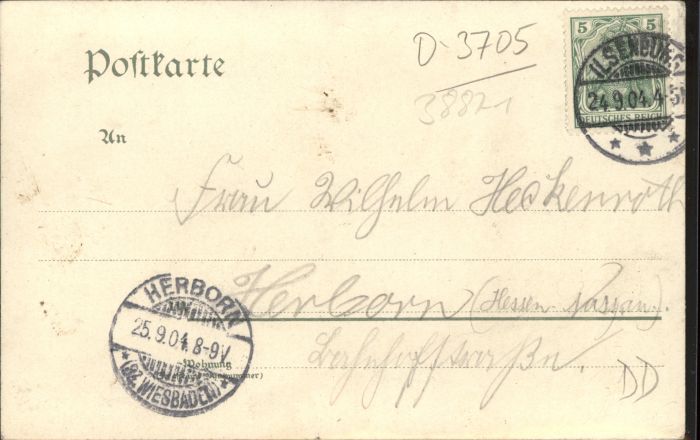 D-3705
38821
Postkarte
An
5 5
DEUTSCHES REICH
ILSENBURG
24.9.04. 4-5
Frau Wilhelm Heckenroth
Herborn (Hessen Nassau).
Bahnhofstraße.
HERBORN
25.9.04. 8-9V
*(BZ. WIESBADEN)*
Wohnung
DD